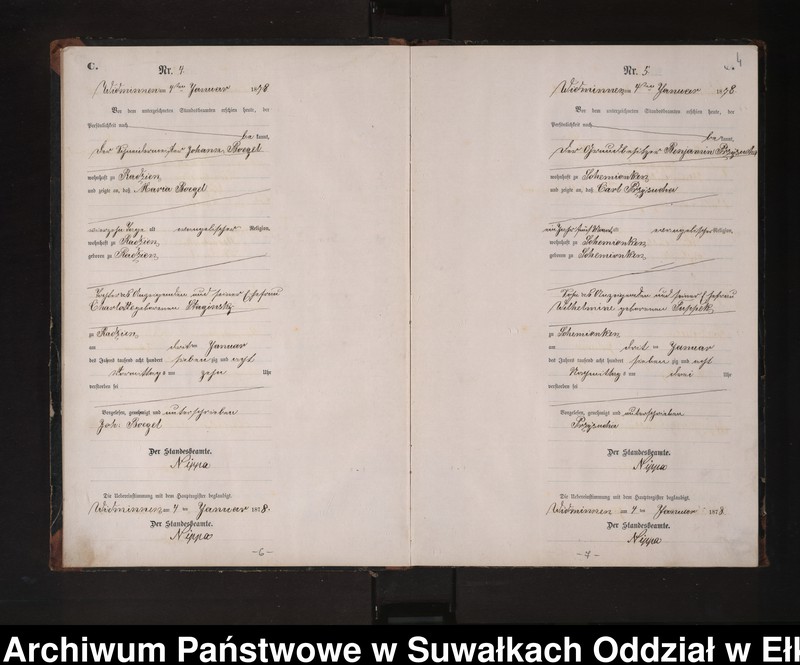 C.
Nr. 4.
Widminnen am 4ten Januar 1878
Vor dem unterzeichneten Standesbeamten erschien heute, der
Persönlichkeit nach
be kannt,
der Johann Boegel
wohnhaft zu Radzien
und zeigte an, daß Maria Boegel
vierzehn Tage alt evangelischer Religion,
wohnhaft zu Radzien
geboren zu Radzien
Tochter des Anzeigenden und seiner Ehefrau
Charlotte geborenen
zu Radzien
am drei ten Januar
des Jahres tausend acht hundert sieben zig und acht
Vormittags um zehn Uhr
verstorben sei
Vorgelesen, genehmigt und unterschrieben
Joh. Boegel
Der Standesbeamte.
Nippa
Die Uebereinstimmung mit dem Hauptregister beglaubigt.
Widminnen am 4 ten Januar 1878.
Der Standesbeamte.
Nippa
-6-
4
Nr. 5.
Widminnen am 4ten Januar 1878
Vor dem unterzeichneten Standesbeamten erschien heute, der
Persönlichkeit nach
be kannt,
der Grundbesitzer Benjamin Przysucha
wohnhaft zu Sohemionken
und zeigte an, daß Carl Przysucha
evangelischer Religion,
wohnhaft zu Sohemionken
geboren zu Sohemionken
Sohn des Anzeigenden und seiner Ehefrau
Wilhelmine geborenen
zu Sohemionken
am drei ten Januar
des Jahres tausend acht hundert sieben zig und acht
Nachmittags um drei Uhr
verstorben sei
Vorgelesen, genehmigt und unterschrieben
Przysucha
Der Standesbeamte.
Nippa
Die Uebereinstimmung mit dem Hauptregister beglaubigt.
Widminnen am 4 ten Januar 1878
Der Standesbeamte.
Nippa
-7-
Archiwum Państwowe w Suwałkach Oddział w Eł